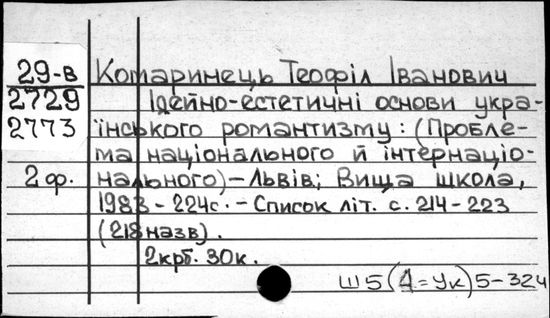 29-в Комаринець Теофіл Іванович
2729 Ідейно-естетичні основи укра-
2773 їнського романтизму: (Пробле-
ма національного й інтернаціо-
2 ф. нального) – Львів; Вища школа,
1983 – 224с. – Список літ. с. 214 – 223
(218 назв).
2крб. 30к.
Ш5(4=Ук)5-324